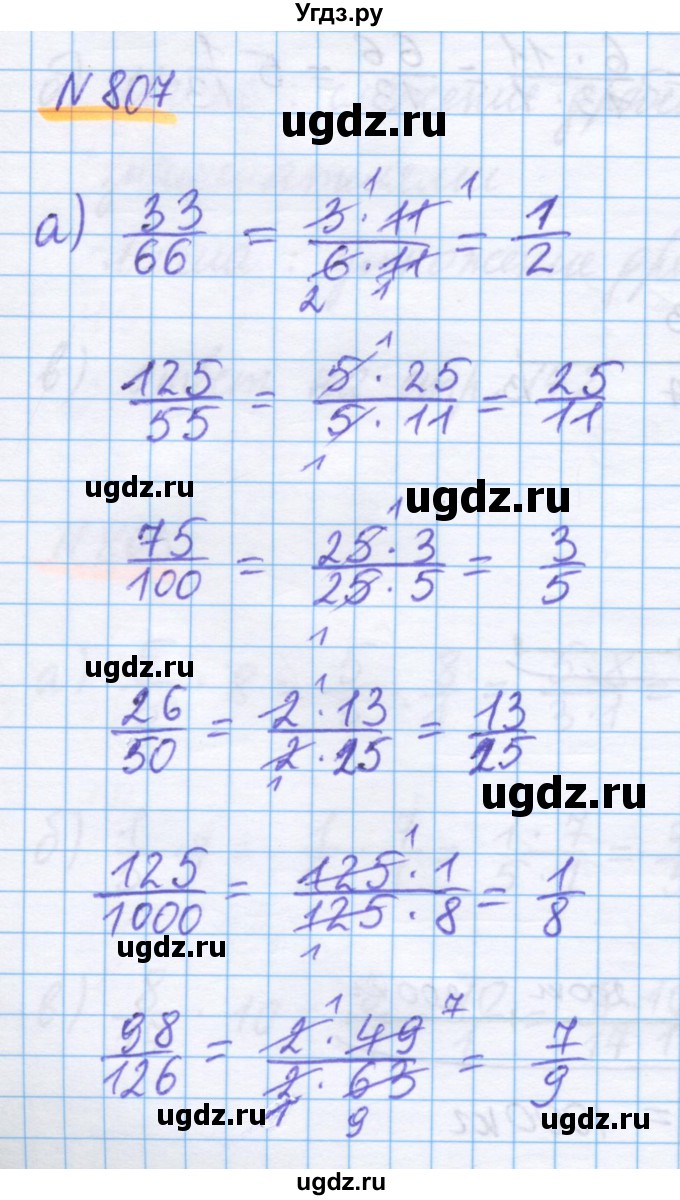 Угдз.ру
N 807
ugdz.ru
а) 33/66 = 3·11/6·11 = 1/2
1 1
2 1
125/55 = 5·25/5·11 = 25/11
1
1
ugdz.ru
ugdz.ru
75/100 = 25·3/25·5 = 3/5
1
1
ugdz.ru
26/50 = 2·13/2·25 = 13/25
1
1
ugdz.ru
125/1000 = 125·1/125·8 = 1/8
1
1
ugdz.ru
98/126 = 2·49/2·63 = 7/9
1 7
1 9
ugdz.ru
ugdz.ru
ugdz.ru